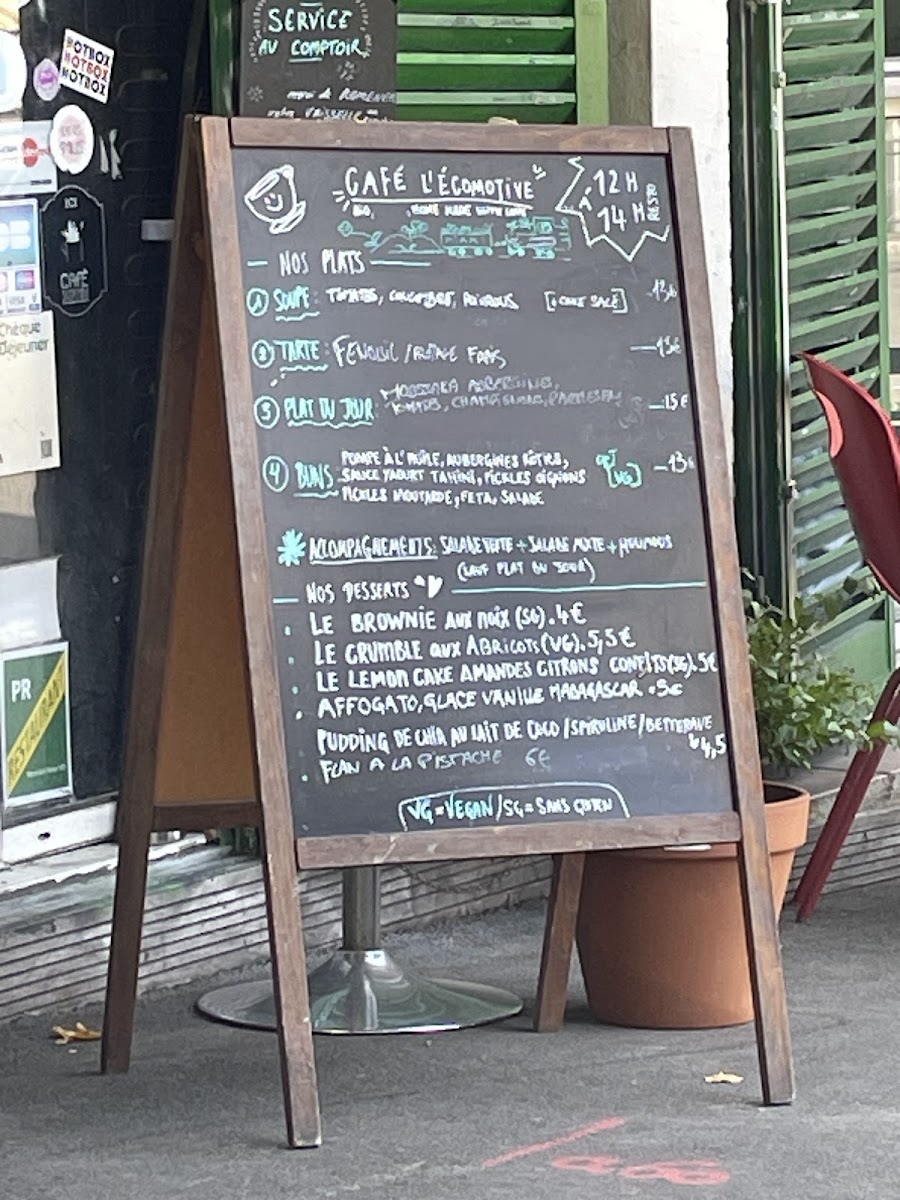 SERVICE
AU COMPTOIR
HOTBOX
HOTBOX
HOTBOX
ICI
CAFÉ
VISA
Chèque
Déjeuner
PR
RESTAURANT
CAFÉ L'ÉCOMOTIVE
BIO, HOME MADE WITH LOVE
12H
À
14H
RESTO
NOS PLATS
1 SOUPE: TOMATES, CONCOMBRE, POIVRONS [+ CAKE SALÉ] 13€
2 TARTE: FENOUIL / FROMAGE FRAIS 13€
3 PLAT DU JOUR: MOUSSAKA AUBERGINES,
TOMATES, CHAMPIGNONS, PARMESAN 15€
4 BUNS POMPE À L'HUILE, AUBERGINES RÔTIES,
SAUCE YAOURT TAHINI, PICKLES OIGNONS [VG] 13€
PICKLES MOUTARDE, FETA, SALADE
ACCOMPAGNEMENTS: SALADE VERTE + SALADE MIXTE + HOUMOUS
(SAUF PLAT DU JOUR)
NOS DESSERTS
LE BROWNIE AUX NOIX (SG). 4€
LE CRUMBLE AUX ABRICOTS (VG). 5,5€
LE LEMON CAKE AMANDES CITRONS CONFITS (SG). 5€
AFFOGATO, GLACE VANILLE MADAGASCAR . 5€
PUDDING DE CHIA AU LAIT DE COCO / SPIRULINE / BETTERAVE
4,5
FLAN A LA PISTACHE 6€
VG = VEGAN / SG = SANS GLUTEN